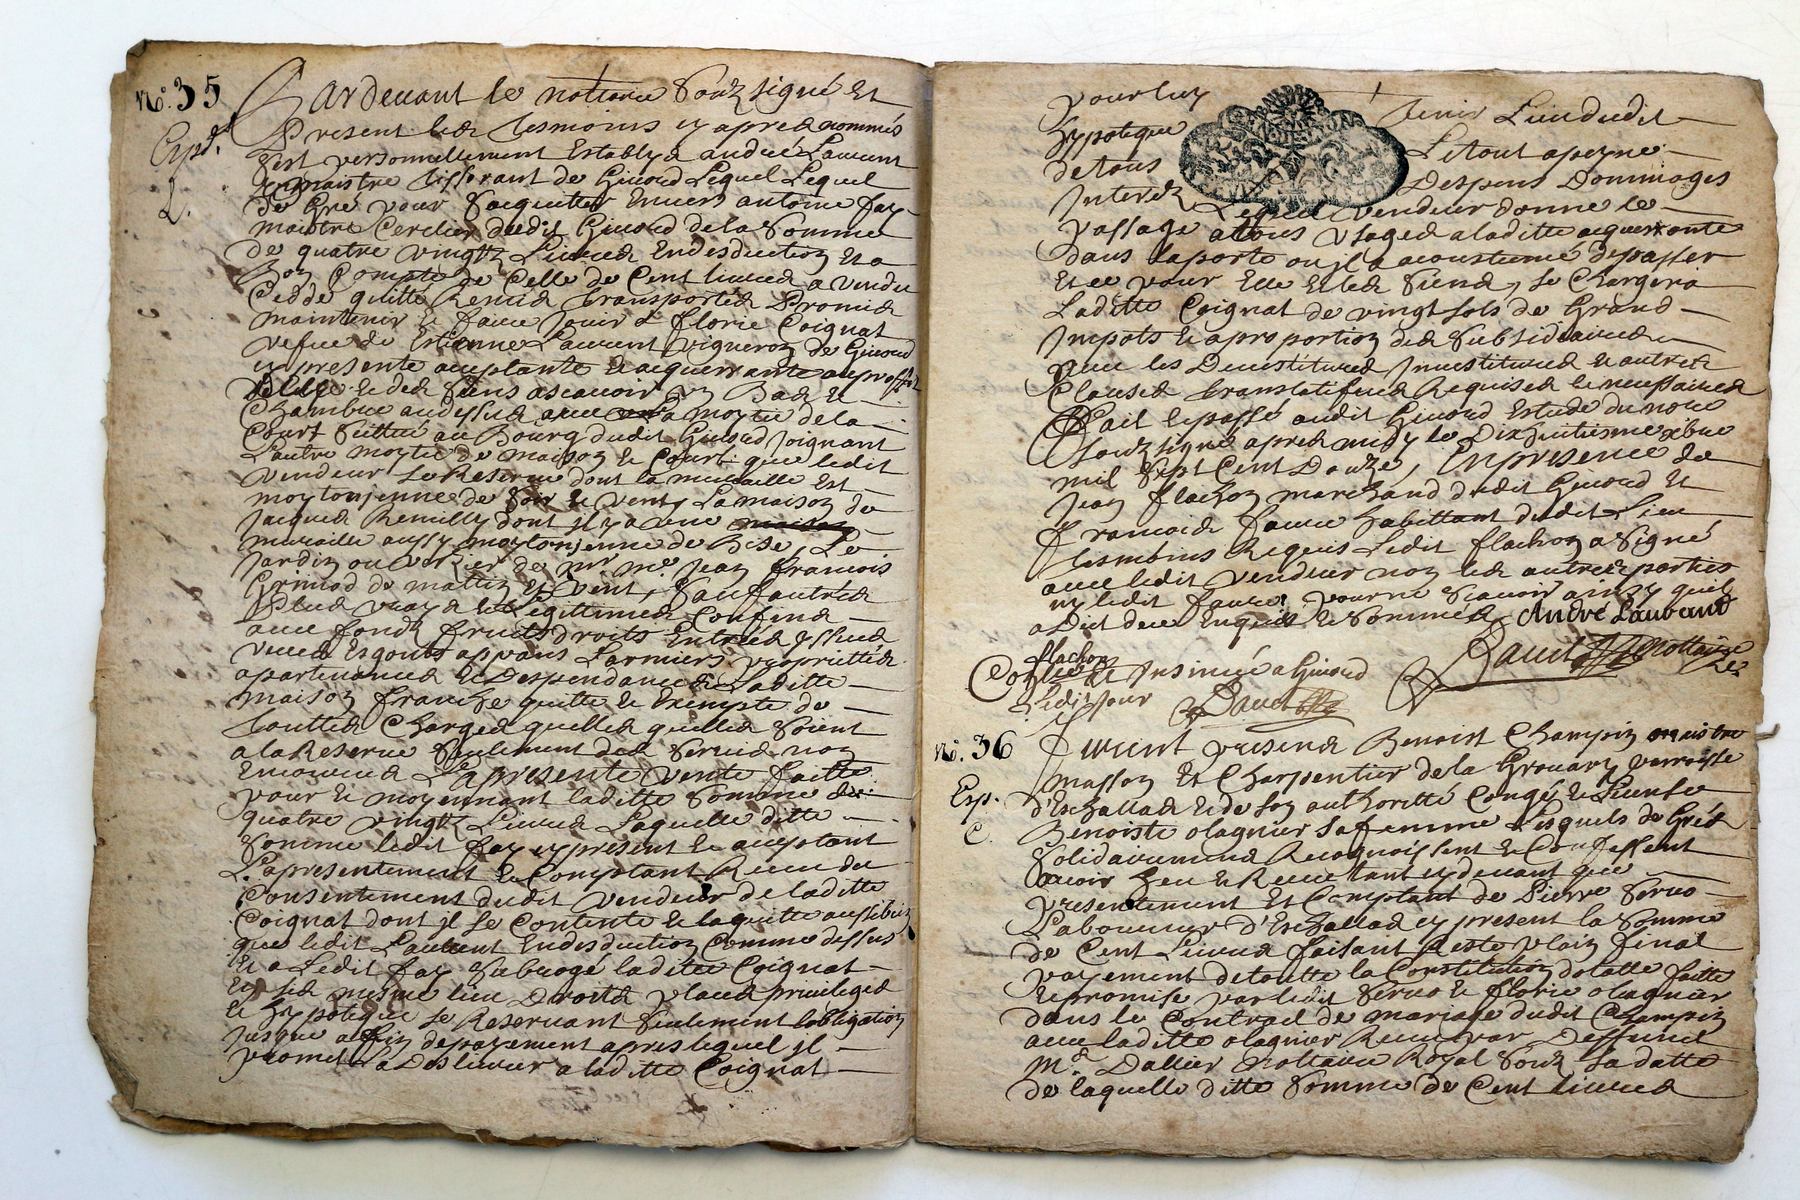 No. 35
Expd.
L.
Pardevant le nottaire Soubz signé Et
Present les tesmoins cy apres nommés
Sest personnellement Estably andré Laurent
maistre tisserant de Givord Lequel Lequel
de Gré pour Sacquitter Envers antoine fay
maistre Cerclier dudit Givord de la Somme
de quatre vingtz Livres Endesduction Et a
bon Compte de Celle de Cent livres a vendu
Cedde quitté Remis transportés Promis
maintenir & faire Jouir a florie Coignat
vefve de Estienne Laurent vigneron de Givord
cy presente acceptante & acquerrante au proffit
delle & des Siens ascavoir un Bas &
Chambre audessus avec la moytié de la
Court Scittué au Bourg dudit Givord Joignant
L'autre moytié de maison & Court que ledit
vendeur Se Reserve dont la muraille Est
moytonjenne de Soir & vent, La maison de
Jacques Remilly dont il y a une
muraille aussy moytonjenne de Bise, Le
Jardin ou verger de mr me Jean francois
Grimod de mattin & vent, Sauf autres
Plus vrays & Legittimes Confins
avec fonds fruits droits Entrées yssues
veues Esgouts appans Larmiers proprietés
apartenances & Despendances de Laditte
maison franche quitte & Exempte de
touttes Charges quelles quelles Soient
a la Reserve Seulement des Servis non
Encourus La presente vente faitte
pour & moyennant laditte Somme de
quatre vingtz Livres Laquelle ditte
Somme ledit fay cy present & acceptant
La presentement & Comptant Receu du
Consentement dudit vendeur de laditte
Coignat dont il Se Contente & la quitte aussi bien
que ledit Laurent Endesduction Comme dessus
Et a Ledit fay Subrogé laditte Coignat
En Ses mesme lieu Droits place privileges
& hypoteque Se Reservant Seulement lobligation
Jusque a fin de payement apres lequel il
promet La Deslivrer a laditte Coignat
pour luy tenir Lieu dudit
hypoteque Le tout a peyne
de tous Despens Dommages
Interez Lequel vendeur donne le
passage a tous usages a laditte acquerrante
dans la porte ou il a acoustumé de passer
Et ce pour Elle Et les Siens, Se Chargera
Laditte Coignat de vingt sols de Grand
Impots & a proportion des Subsidiaires
avec les Devestitures Investitures & autres
Clauses translatifves Requises & necessaires
Fait & passé audit Givord Estude du nore
Soubzsigné apres midy le Dixhuitiesme xbre
mil Sept Cent Douze, En presence de
Jean flachon marchand dudit Givord Et
francois faure habittant dudit Lieu
tesmoins Requis Ledit flachon a Signé
avec ledit vendeur non les autres parties
ny ledit faure pour ne Scavoir ainsy quil
a Dit deue Enquis & Sommés André Laurand
flachon
Nottaire
Collé & Insinué a Givord
Ledit Jour
No. 36
Exp.
C.
Furent presens Benoist Champin maistre
masson Et Charpentier de la Grouary parroisse
d'Eschallas & de Son authoritté Congé & License
Benoiste olagnier Sa femme Lesquels de Grés
Solidairement Recognoissent & Confessent
avoir heu & Receu tant cy devant que
presentement Et Comptant de Pierre Servo
Laboureur d'Eschallas cy present la Somme
de Cent Livres faisant Reste plain final
payement de toutte la Constitution dotalle faitte
& promise par ledit Servo & florie olagnier
dans le Contract de mariage dudit Champin
avec laditte olagnier Receu par Deffunct
Me. Dallier Nottaire Royal Soubz Sa datte
de laquelle ditte Somme de Cent livres